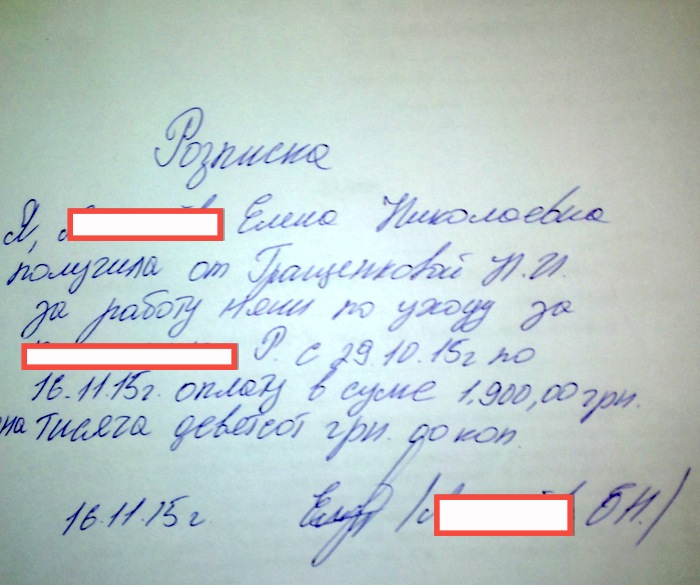 Розписка
Я, Елена Николаевна
получила от Гращенковой Н.И.
за работу няни по уходу за
Р. с 29.10.15г по
16.11.15г. оплату в суме 1.900,00 грн.
на тисяча девятсот грн. 00 коп.
16.11.15г